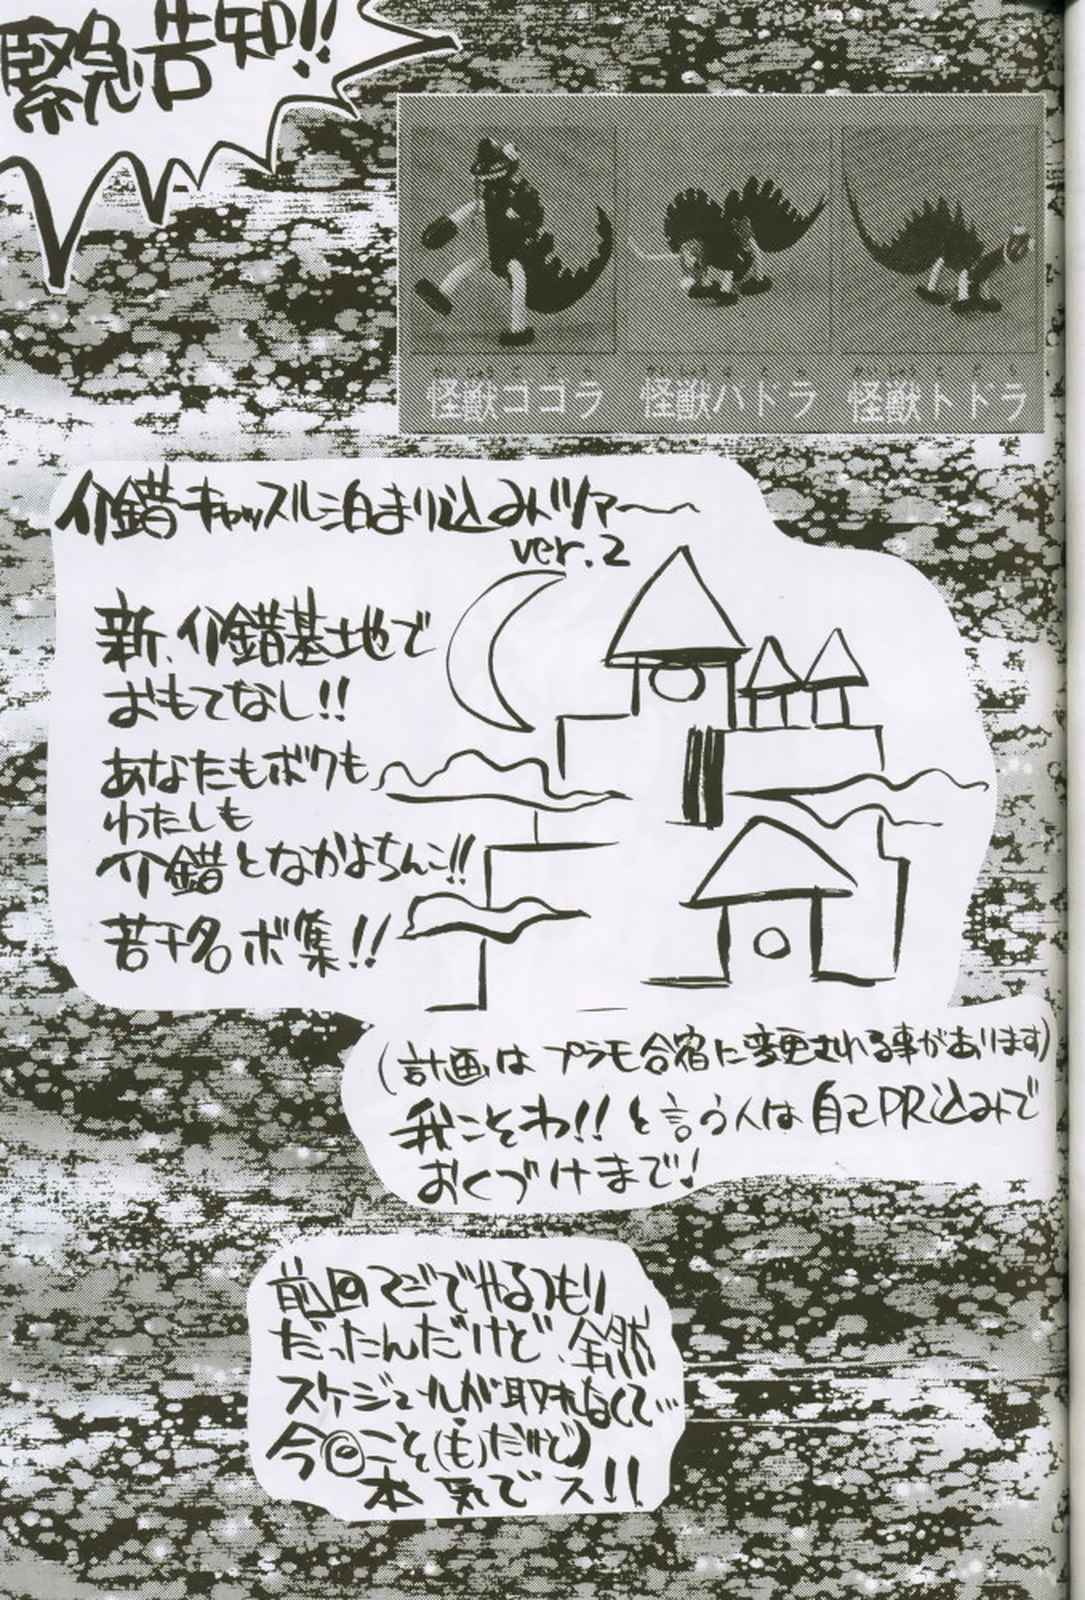 緊急告知!!
かいじゅうごごら
怪獣ゴゴラ
かいじゅうはとら
怪獣ハトラ
かいじゅうとどら
怪獣トドラ
介錯キャッスル泊まり込みツアー〜
ver.2
新、介錯基地で
おもてなし!!
あなたもボクも
わたしも
介錯となかよちんこ!!
若干名ボ集!!
(計画はプラモ合宿に変更される事があります)
我こそわ!!と言う人は自己PR込みで
おくづけまで!
前回マジでやるつもり
だったんだけど、全然
スケジュールが取れなくて…
今回こそ(も)だけど
本気でス!!